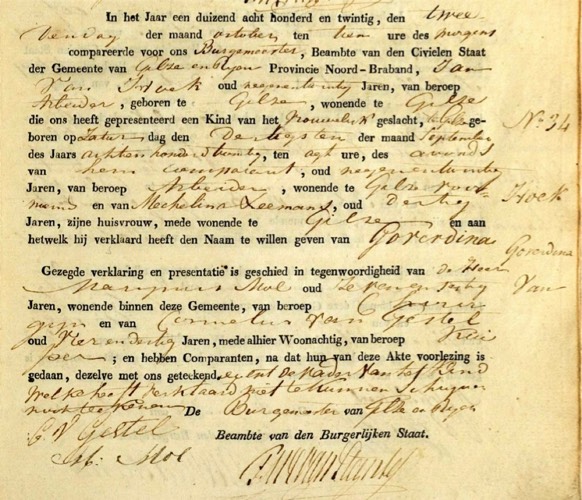 In het Jaar een duizend acht honderd en twintig, den twee
den dag der maand october ten tien ure des morgens
compareerde voor ons Burgemeester, Beambte van den Civielen Staat
der Gemeente van Gilze en Rijen Provincie Noord-Braband, Jan
Van Hoek oud negenentwintig Jaren, van beroep
Arbeider, geboren te Gilze, wonende te Gilze
die ons heeft gepresenteerd een Kind van het Vrouwelijk geslacht, ge-
boren op Zatur dag den Dertigsten der maand September
des Jaars achttien honderd twintig, ten agt ure, des avonds
van hem comparant, oud negenentwintig
Jaren, van beroep Arbeider, wonende te Gilze voor
noemd en van Mechelina Leemans, oud Dertig
Jaren, zijne huisvrouw, mede wonende te Gilze en aan
hetwelk hij verklaard heeft den Naam te willen geven van Goverdina
Gezegde verklaring en presentatie is geschied in tegenwoordigheid van de Heer
Mol oud Zevenendertig
Jaren, wonende binnen deze Gemeente, van beroep
en van Cornelis van Gestel
oud Vierendertig Jaren, mede alhier Woonachtig, van beroep
; en hebben Comparanten, na dat hun van deze Akte voorlezing is
gedaan, dezelve met ons geteekend, de Vader van het Kind
welke heeft verklaard niet te kunnen schrijven
noch teekenen De Burgemeester van Gilze en Rijen
C V Gestel
Beambte van den Burgerlijken Staat.
Mol
No 34
Hoek
Goverdina
Van